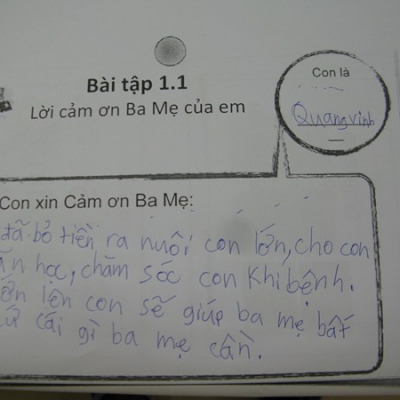 Bài tập 1.1
Lời cảm ơn Ba Mẹ của em
Con là
Quang vinh
Con xin Cảm ơn Ba Mẹ:
đã bỏ tiền ra nuôi con lớn, cho con
ăn học, chăm sóc con khi bệnh.
lên con sẽ giúp ba mẹ bất
cứ cái gì ba mẹ cần.